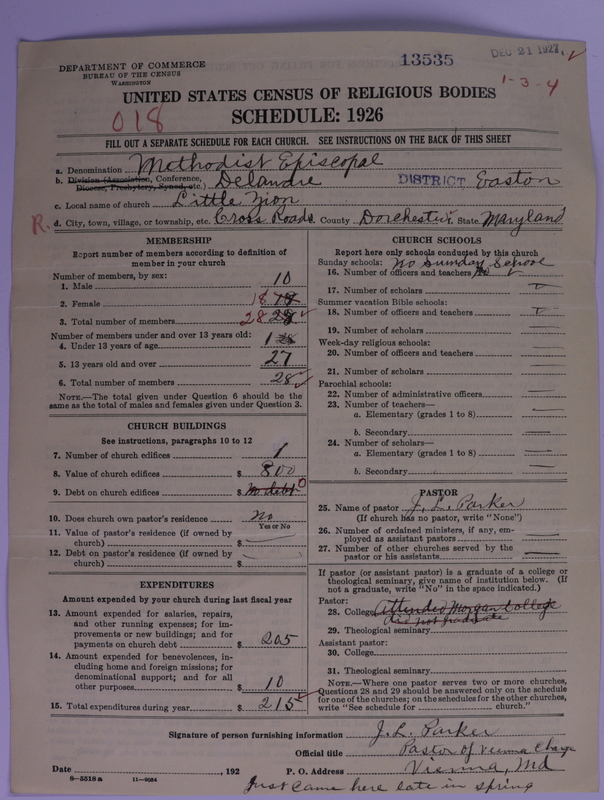 DEPARTMENT OF COMMERCE
BUREAU OF THE CENSUS
WASHINGTON
13535
DEC 21 1927
1-3-4
UNITED STATES CENSUS OF RELIGIOUS BODIES
SCHEDULE: 1926
018
FILL OUT A SEPARATE SCHEDULE FOR EACH CHURCH. SEE INSTRUCTIONS ON THE BACK OF THIS SHEET
a. Denomination Methodist Episcopal
b. Division (Association, Conference, Diocese, Presbytery, Synod, etc.) Delaware DISTRICT Easton
c. Local name of church Little Zion
R. d. City, town, village, or township, etc. Cross Roads County Dorchester State Maryland
MEMBERSHIP
Report number of members according to definition of
member in your church
Number of members, by sex:
1. Male 10
2. Female 18
3. Total number of members 28
Number of members under and over 13 years old:
4. Under 13 years of age 1
5. 13 years old and over 27
6. Total number of members 28
NOTE.—The total given under Question 6 should be
same as the total of males and females given under Question 3.
CHURCH BUILDINGS
See instructions, paragraphs 10 to 12
7. Number of church edifices 1
8. Value of church edifices $ 800
9. Debt on church edifices $ No debt 0
10. Does church own pastor's residence No
Yes or No
11. Value of pastor's residence (if owned by
church) $
12. Debt on pastor's residence (if owned by
church) $
EXPENDITURES
Amount expended by your church during last fiscal year
13. Amount expended for salaries, repairs,
and other running expenses; for im-
provements or new buildings; and for
payments on church debt $ 205
14. Amount expended for benevolences, in-
cluding home and foreign missions; for
denominational support; and for all
other purposes $ 10
15. Total expenditures during year $ 215
CHURCH SCHOOLS
Report here only schools conducted by this church
Sunday schools: No Sunday School
16. Number of officers and teachers No
17. Number of scholars
Summer vacation Bible schools:
18. Number of officers and teachers
19. Number of scholars
Week-day religious schools:
20. Number of officers and teachers
21. Number of scholars
Parochial schools:
22. Number of administrative officers
23. Number of teachers—
a. Elementary (grades 1 to 8)
b. Secondary
24. Number of scholars—
a. Elementary (grades 1 to 8)
b. Secondary
PASTOR
25. Name of pastor J. L. Parker
(If church has no pastor, write "None")
26. Number of ordained ministers, if any, em-
ployed as assistant pastors
27. Number of other churches served by the
pastor or his assistants
If pastor (or assistant pastor) is a graduate of a college or
theological seminary, give name of institution below. (If
not a graduate, write "No" in the space indicated.)
Pastor:
28. College attended Morgan College
did not graduate
29. Theological seminary
Assistant pastor:
30. College
31. Theological seminary
NOTE.—Where one pastor serves two or more churches,
Questions 28 and 29 should be answered only on the schedule
for one of the churches; on the schedules for the other churches,
write "See schedule for church."
Signature of person furnishing information J. L. Parker
Official title Pastor of Vienna Charge
Date , 192 P. O. Address Vienna, Md
8-5518a 11-9064
Just came here late in spring